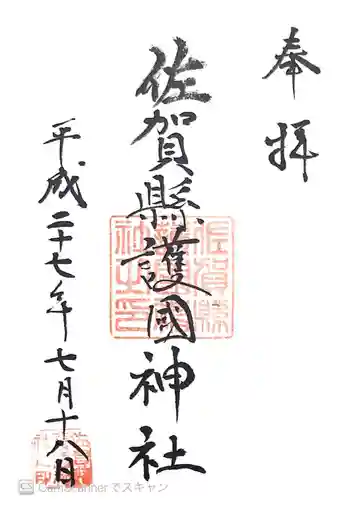 奉拝
佐賀縣護國神社
平成二十七年七月十八日
佐賀縣
護國神
社之印
CS CamScannerでスキャン